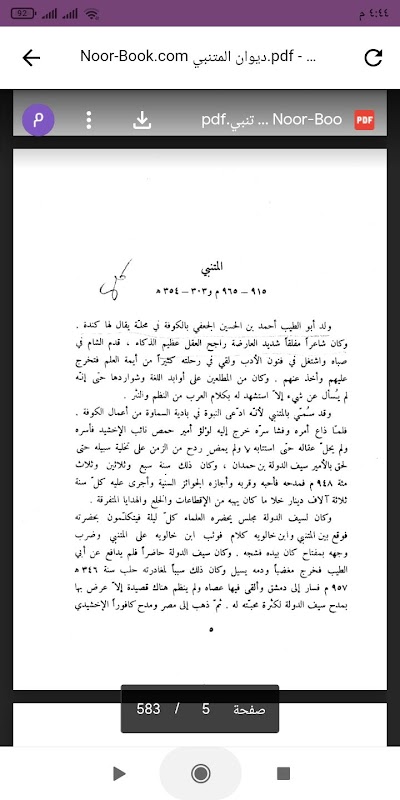 ٤:٤٤ م
92
Noor-Book.com ديوان المتنبي.pdf - ...
م
Noor-Boo ... تنبي.pdf
PDF
المتنبي
٩١٥ – ٩٦٥ م و٣٠٣ – ٣٥٤ ه
ولد أبو الطيب أحمد بن الحسين الجعفي بالكوفة في محلّة يقال لها كندة .
وكان شاعراً مفلقاً شديد العارضة راجح العقل عظيم الذكاء ، قدم الشام في
صباه واشتغل في فنون الأدب ولقي في رحلته كثيراً من أيمة العلم فتخرج
عليهم وأخذ عنهم . وكان من المطلعين على أوابد اللغة وشواردها حتى إنّه
لم يُسأل عن شيء إلاّ استشهد له بكلام العرب من النظم والنثر .
وقد سُمّي بالمتنبي لأنّه ادّعى النبوة في بادية السماوة من أعمال الكوفة .
فلمّا ذاع أمره وفشا سرّه خرج إليه لؤلؤ أمير حمص نائب الإخشيد فأسره
ولم يحلّ عقاله حتى استتابه . ولم يمض ردح من الزمن على تخلية سبيله حتى
لحق بالأمير سيف الدولة بن حمدان ، وكان ذلك سنة سبع وثلاثين وثلاث
مئة ٩٤٨ م فمدحه فأحبه وقربه وأجازه الجوائز السنيّة وأجرى عليه كلّ سنة
ثلاثة آلاف دينار خلا ما كان يهبه من الإقطاعات والخلع والهدايا المتفرقة .
وكان لسيف الدولة مجلس يحضره العلماء كلّ ليلة فيتكلّمون بحضرته
فوقع بين المتنبي وابن خالويه كلام فوثب ابن خالويه على المتنبي وضرب
وجهه بمفتاح كان بيده فشجه . وكان سيف الدولة حاضراً فلم يدافع عن أبي
الطيب فخرج مغضباً ودمه يسيل وكان ذلك سبباً لمغادرته حلب سنة ٣٤٦ ه
٩٥٧ م فسار إلى دمشق وألقى فيها عصاه ولم ينظم هناك قصيدة إلاّ عرض بها
بمدح سيف الدولة لكثرة محبّته له . ثمّ ذهب إلى مصر ومدح كافوراً الإخشيدي
٥
صفحة 5 / 583